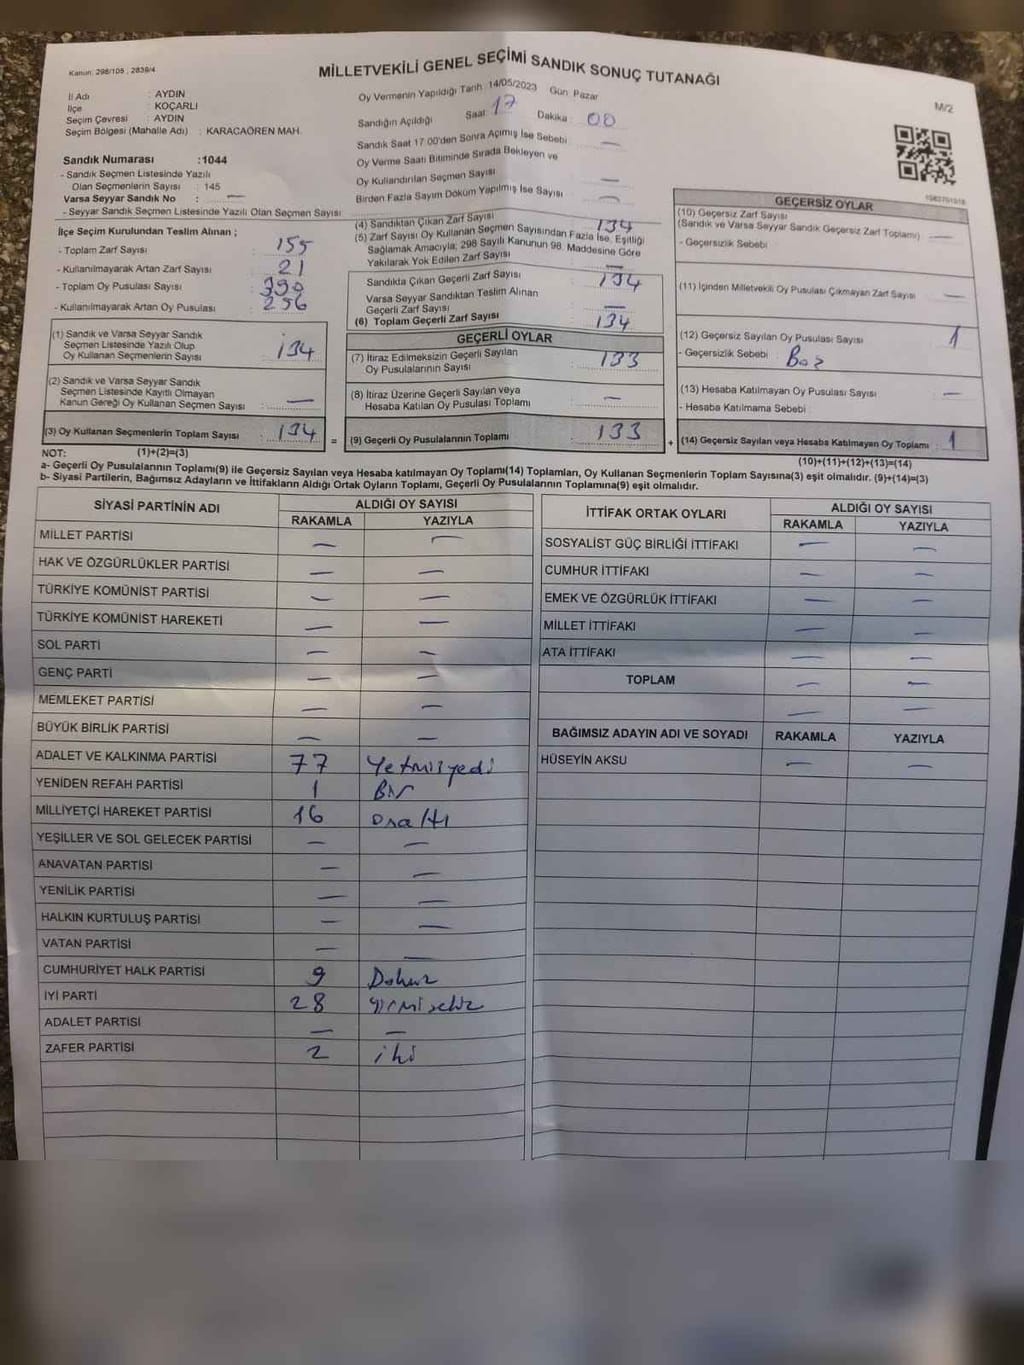 Kanun: 298/105 , 2839/4
MİLLETVEKİLİ GENEL SEÇİMİ SANDIK SONUÇ TUTANAĞI
M/2
İl Adı : AYDIN
İlçe : KOÇARLI
Seçim Çevresi : AYDIN
Seçim Bölgesi (Mahalle Adı) : KARACAÖREN MAH.
Oy Vermenin Yapıldığı Tarih :14/05/2023 Gün: Pazar
Sandığın Açıldığı Saat: 17 Dakika : 00
Sandık Saat 17:00'den Sonra Açılmış İse Sebebi —
Oy Verme Saati Bitiminde Sırada Bekleyen ve
Oy Kullandırılan Seçmen Sayısı —
Birden Fazla Sayım Döküm Yapılmış İse Sayısı —
Sandık Numarası :1044
- Sandık Seçmen Listesinde Yazılı
Olan Seçmenlerin Sayısı : 145
Varsa Seyyar Sandık No : —
- Seyyar Sandık Seçmen Listesinde Yazılı Olan Seçmen Sayısı
İlçe Seçim Kurulundan Teslim Alınan ;
- Toplam Zarf Sayısı : 155
- Kullanılmayarak Artan Zarf Sayısı : 21
- Toplam Oy Pusulası Sayısı :
- Kullanılmayarak Artan Oy Pusulası : 256
(1) Sandık ve Varsa Seyyar Sandık
Seçmen Listesinde Yazılı Olup
Oy Kullanan Seçmenlerin Sayısı : 134
(2) Sandık ve Varsa Seyyar Sandık
Seçmen Listesinde Kayıtlı Olmayan
Kanun Gereği Oy Kullanan Seçmen Sayısı : —
(3) Oy Kullanan Seçmenlerin Toplam Sayısı : 134
(4) Sandıktan Çıkan Zarf Sayısı 134
(5) Zarf Sayısı Oy Kullanan Seçmen Sayısından Fazla İse, Eşitliği
Sağlamak Amacıyla; 298 Sayılı Kanunun 98. Maddesine Göre
Yakılarak Yok Edilen Zarf Sayısı —
Sandıkta Çıkan Geçerli Zarf Sayısı 134
Varsa Seyyar Sandıktan Teslim Alınan
Geçerli Zarf Sayısı: —
(6) Toplam Geçerli Zarf Sayısı 134
GEÇERLİ OYLAR
(7) İtiraz Edilmeksizin Geçerli Sayılan
Oy Pusulalarının Sayısı : 133
(8) İtiraz Üzerine Geçerli Sayılan veya
Hesaba Katılan Oy Pusulası Toplamı : —
= (9) Geçerli Oy Pusulalarının Toplamı : 133
GEÇERSİZ OYLAR
(10) Geçersiz Zarf Sayısı
(Sandık ve Varsa Seyyar Sandık Geçersiz Zarf Toplamı) —
- Geçersizlik Sebebi :
(11) İçinden Milletvekili Oy Pusulası Çıkmayan Zarf Sayısı —
(12) Geçersiz Sayılan Oy Pusulası Sayısı : 1
- Geçersizlik Sebebi : Boş
(13) Hesaba Katılmayan Oy Pusulası Sayısı : —
- Hesaba Katılmama Sebebi :
+ (14) Geçersiz Sayılan veya Hesaba Katılmayan Oy Toplamı : 1
NOT: (1)+(2)=(3)
(10)+(11)+(12)+(13)=(14)
a- Geçerli Oy Pusulalarının Toplamı(9) ile Geçersiz Sayılan veya Hesaba katılmayan Oy Toplamı(14) Toplamları, Oy Kullanan Seçmenlerin Toplam Sayısına(3) eşit olmalıdır. (9)+(14)=(3)
b- Siyasi Partilerin, Bağımsız Adayların ve İttifakların Aldığı Ortak Oyların Toplamı, Geçerli Oy Pusulalarının Toplamına(9) eşit olmalıdır.
SİYASİ PARTİNİN ADI ALDIĞI OY SAYISI
RAKAMLA YAZIYLA
MİLLET PARTİSİ — —
HAK VE ÖZGÜRLÜKLER PARTİSİ — —
TÜRKİYE KOMÜNİST PARTİSİ — —
TÜRKİYE KOMÜNİST HAREKETİ — —
SOL PARTİ — —
GENÇ PARTİ — —
MEMLEKET PARTİSİ — —
BÜYÜK BİRLİK PARTİSİ — —
ADALET VE KALKINMA PARTİSİ 77 Yetmişyedi
YENİDEN REFAH PARTİSİ 1 Bir
MİLLİYETÇİ HAREKET PARTİSİ 16 onaltı
YEŞİLLER VE SOL GELECEK PARTİSİ — —
ANAVATAN PARTİSİ — —
YENİLİK PARTİSİ — —
HALKIN KURTULUŞ PARTİSİ — —
VATAN PARTİSİ — —
CUMHURİYET HALK PARTİSİ 9 Dokuz
İYİ PARTİ 28 yirmisekiz
ADALET PARTİSİ — —
ZAFER PARTİSİ 2 iki
İTTİFAK ORTAK OYLARI ALDIĞI OY SAYISI
RAKAMLA YAZIYLA
SOSYALİST GÜÇ BİRLİĞİ İTTİFAKI — —
CUMHUR İTTİFAKI — —
EMEK VE ÖZGÜRLÜK İTTİFAKI — —
MİLLET İTTİFAKI — —
ATA İTTİFAKI — —
TOPLAM — —
— —
BAĞIMSIZ ADAYIN ADI VE SOYADI RAKAMLA YAZIYLA
HÜSEYİN AKSU — —